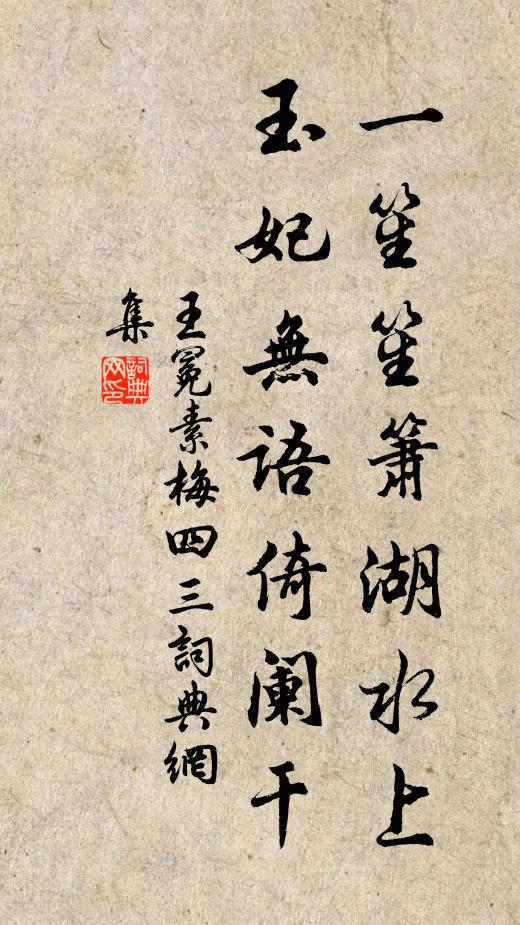 一笙笙簫湖水上
玉妃無語倚闌干
王冕素梅四三詞典網
集
詞典
网印